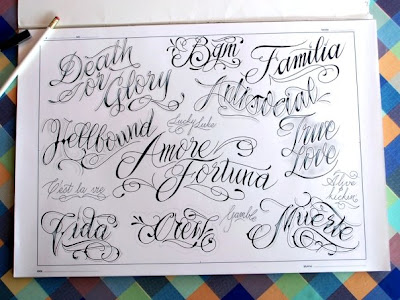 Death
or
Glory
Bgni
Familia
Antisocial
Hellbound
Lucky Luke
True
Love
Amore
Fortuna
C'est la vie
Alive
Kickin
Vida
Crew
Gamble
Muerte